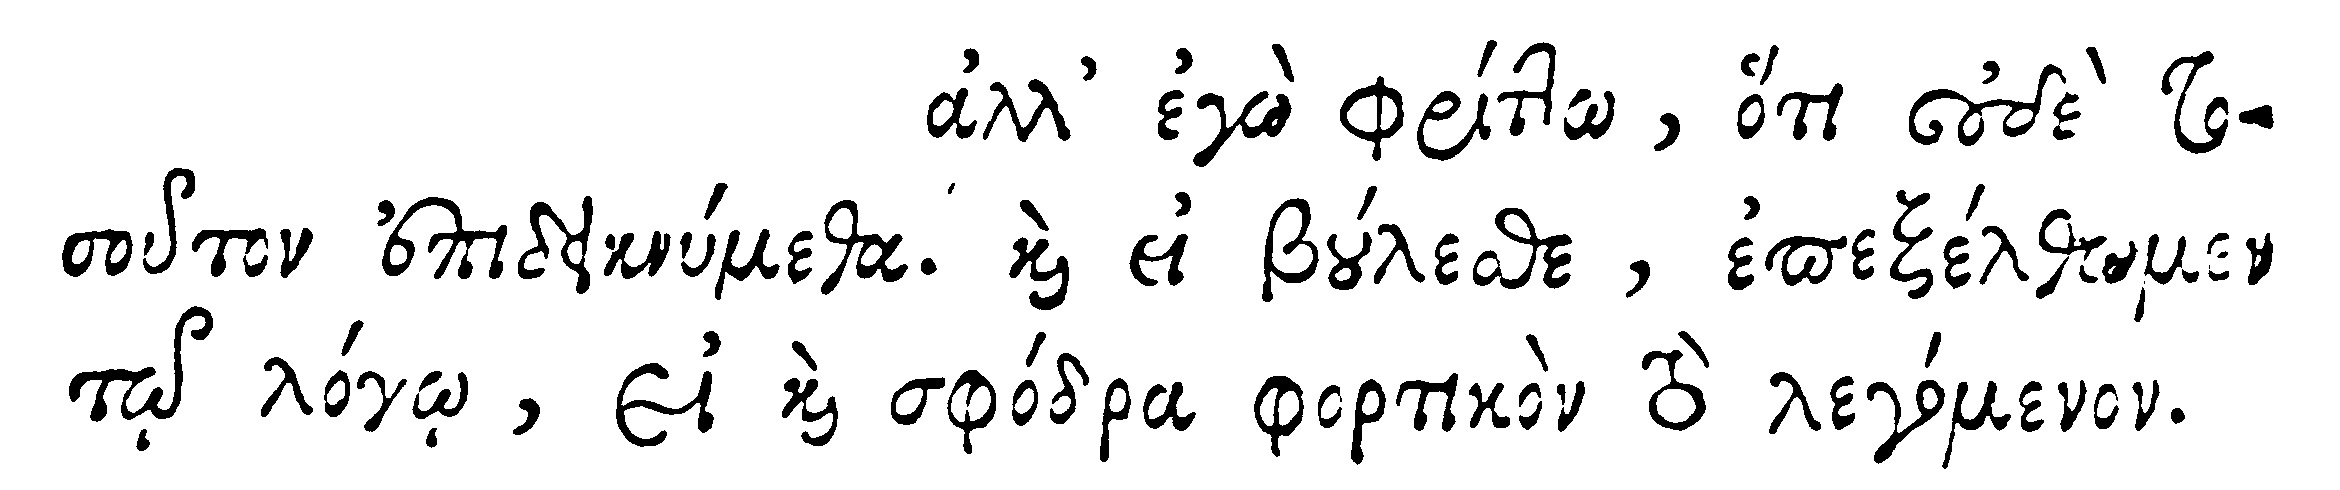 ἀλλ’ ἐγὼ φρίττω, ὅτι οὐδὲ το-
σοῦτον ἐπιδεικνύμεθα. καὶ εἰ βούλεσθε, ἐπεξέλθωμεν
τῷ λόγῳ, εἰ καὶ σφόδρα φορτικὸν τὸ λεγόμενον.